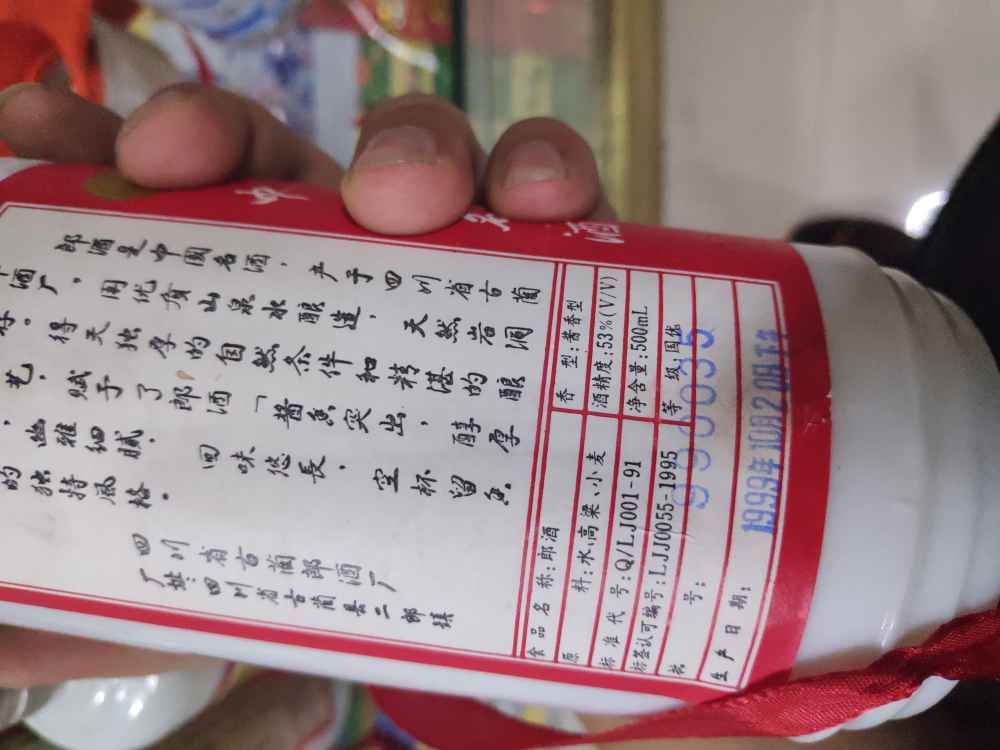 郎酒是中國名酒，产于四川省古蔺
酒厂，用优質山泉水釀造，天然岩洞
存。得天独厚的自然条件和精湛的釀
艺，赋予了郎酒「醬香突出，醇厚
，幽雅细腻，回味悠長，空杯留香
的独特風格。
四川省古蔺郎酒厂
厂址：四川省古蔺县二郎镇
食品名称：郎酒 香型：酱香型
原料：水、高粱、小麦 酒精度：53%(V/V)
标准代号：Q/LJ001-91 净含量：500mL
标签认可编号：LJJ0055-1995 等级 国优
批号：9900035
生产日期：1999年10月20日